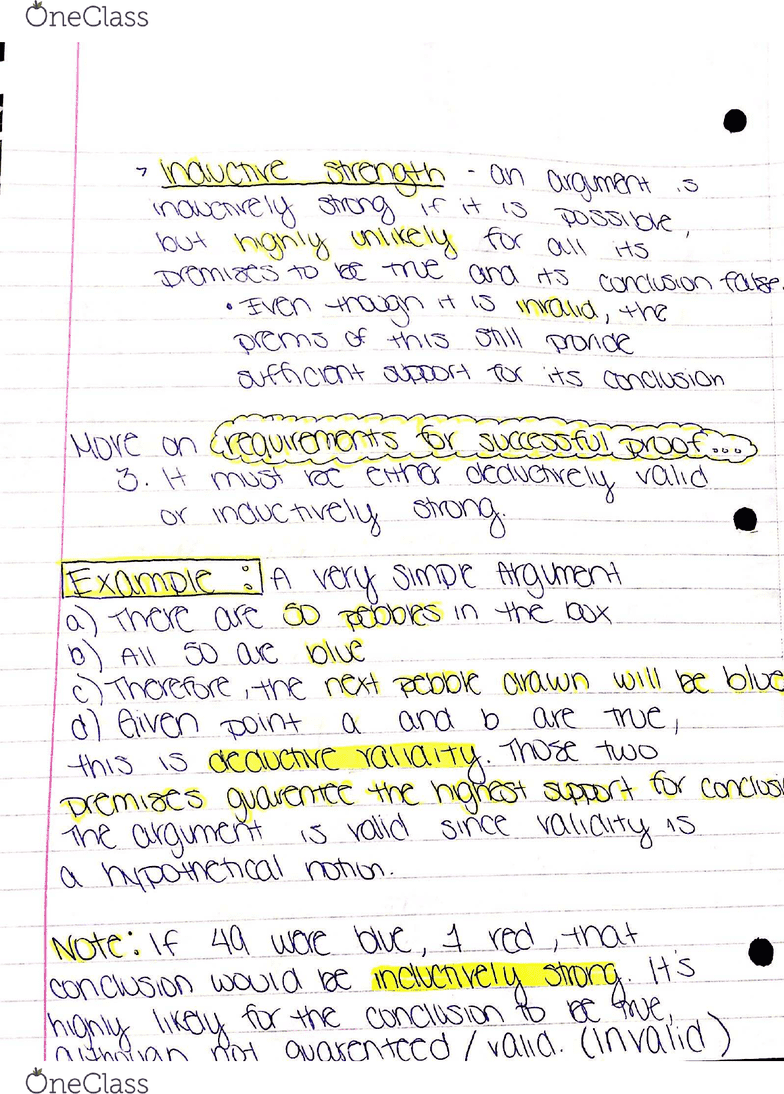 OneClass
> inductive strength - an argument is
inductively strong if it is possible,
but highly unlikely for all its
premises to be true and its conclusion false.
• Even though it is invalid, the
prems of this still provide
sufficient support for its conclusion
More on requirements for successful proof...
3. It must be either deductively valid
or inductively strong.
Example: A very simple Argument
a) There are 50 pebbles in the box
b) All 50 are blue
c) Therefore, the next pebble drawn will be blue
d) Given point a and b are true,
this is deductive validity. Those two
premises guarentee the highest support for conclusi
The argument is valid since validity is
a hypothetical notion.
Note: If 49 were blue, 1 red, that
conclusion would be inductively strong. It's
highly likely for the conclusion to be true,
not guarenteed/valid. (invalid)
OneClass